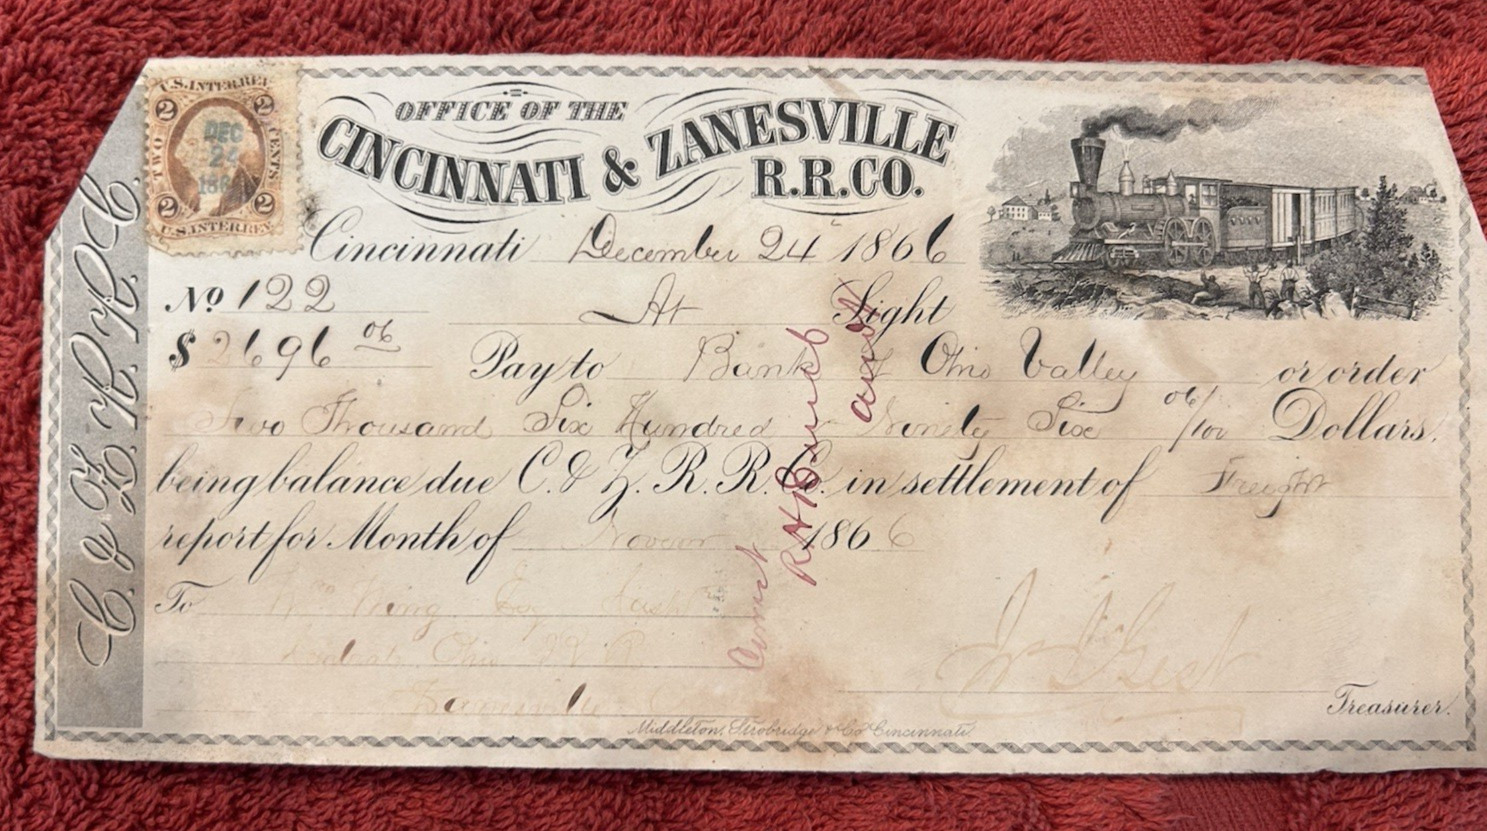 U.S. INTER. REV.
2 2
TWO CENTS
DEC
24
186
2 2
U.S. INTER. REV.
C. & Z. R. R. Co.
OFFICE OF THE
CINCINNATI & ZANESVILLE
R.R.CO.
Cincinnati December 24 1866
No 122 At Sight
$ 2696 06 Pay to Bank of Ohio Valley or order
Two Thousand Six Hundred Ninety Six 06/100 Dollars,
being balance due C. & Z. R. R. Co. in settlement of Freight
report for Month of Novem 1866
To Wm Wing Esq Cash
Central Ohio R R
Zanesville O
Treasurer.
Middleton, Strobridge & Co. Cincinnati.